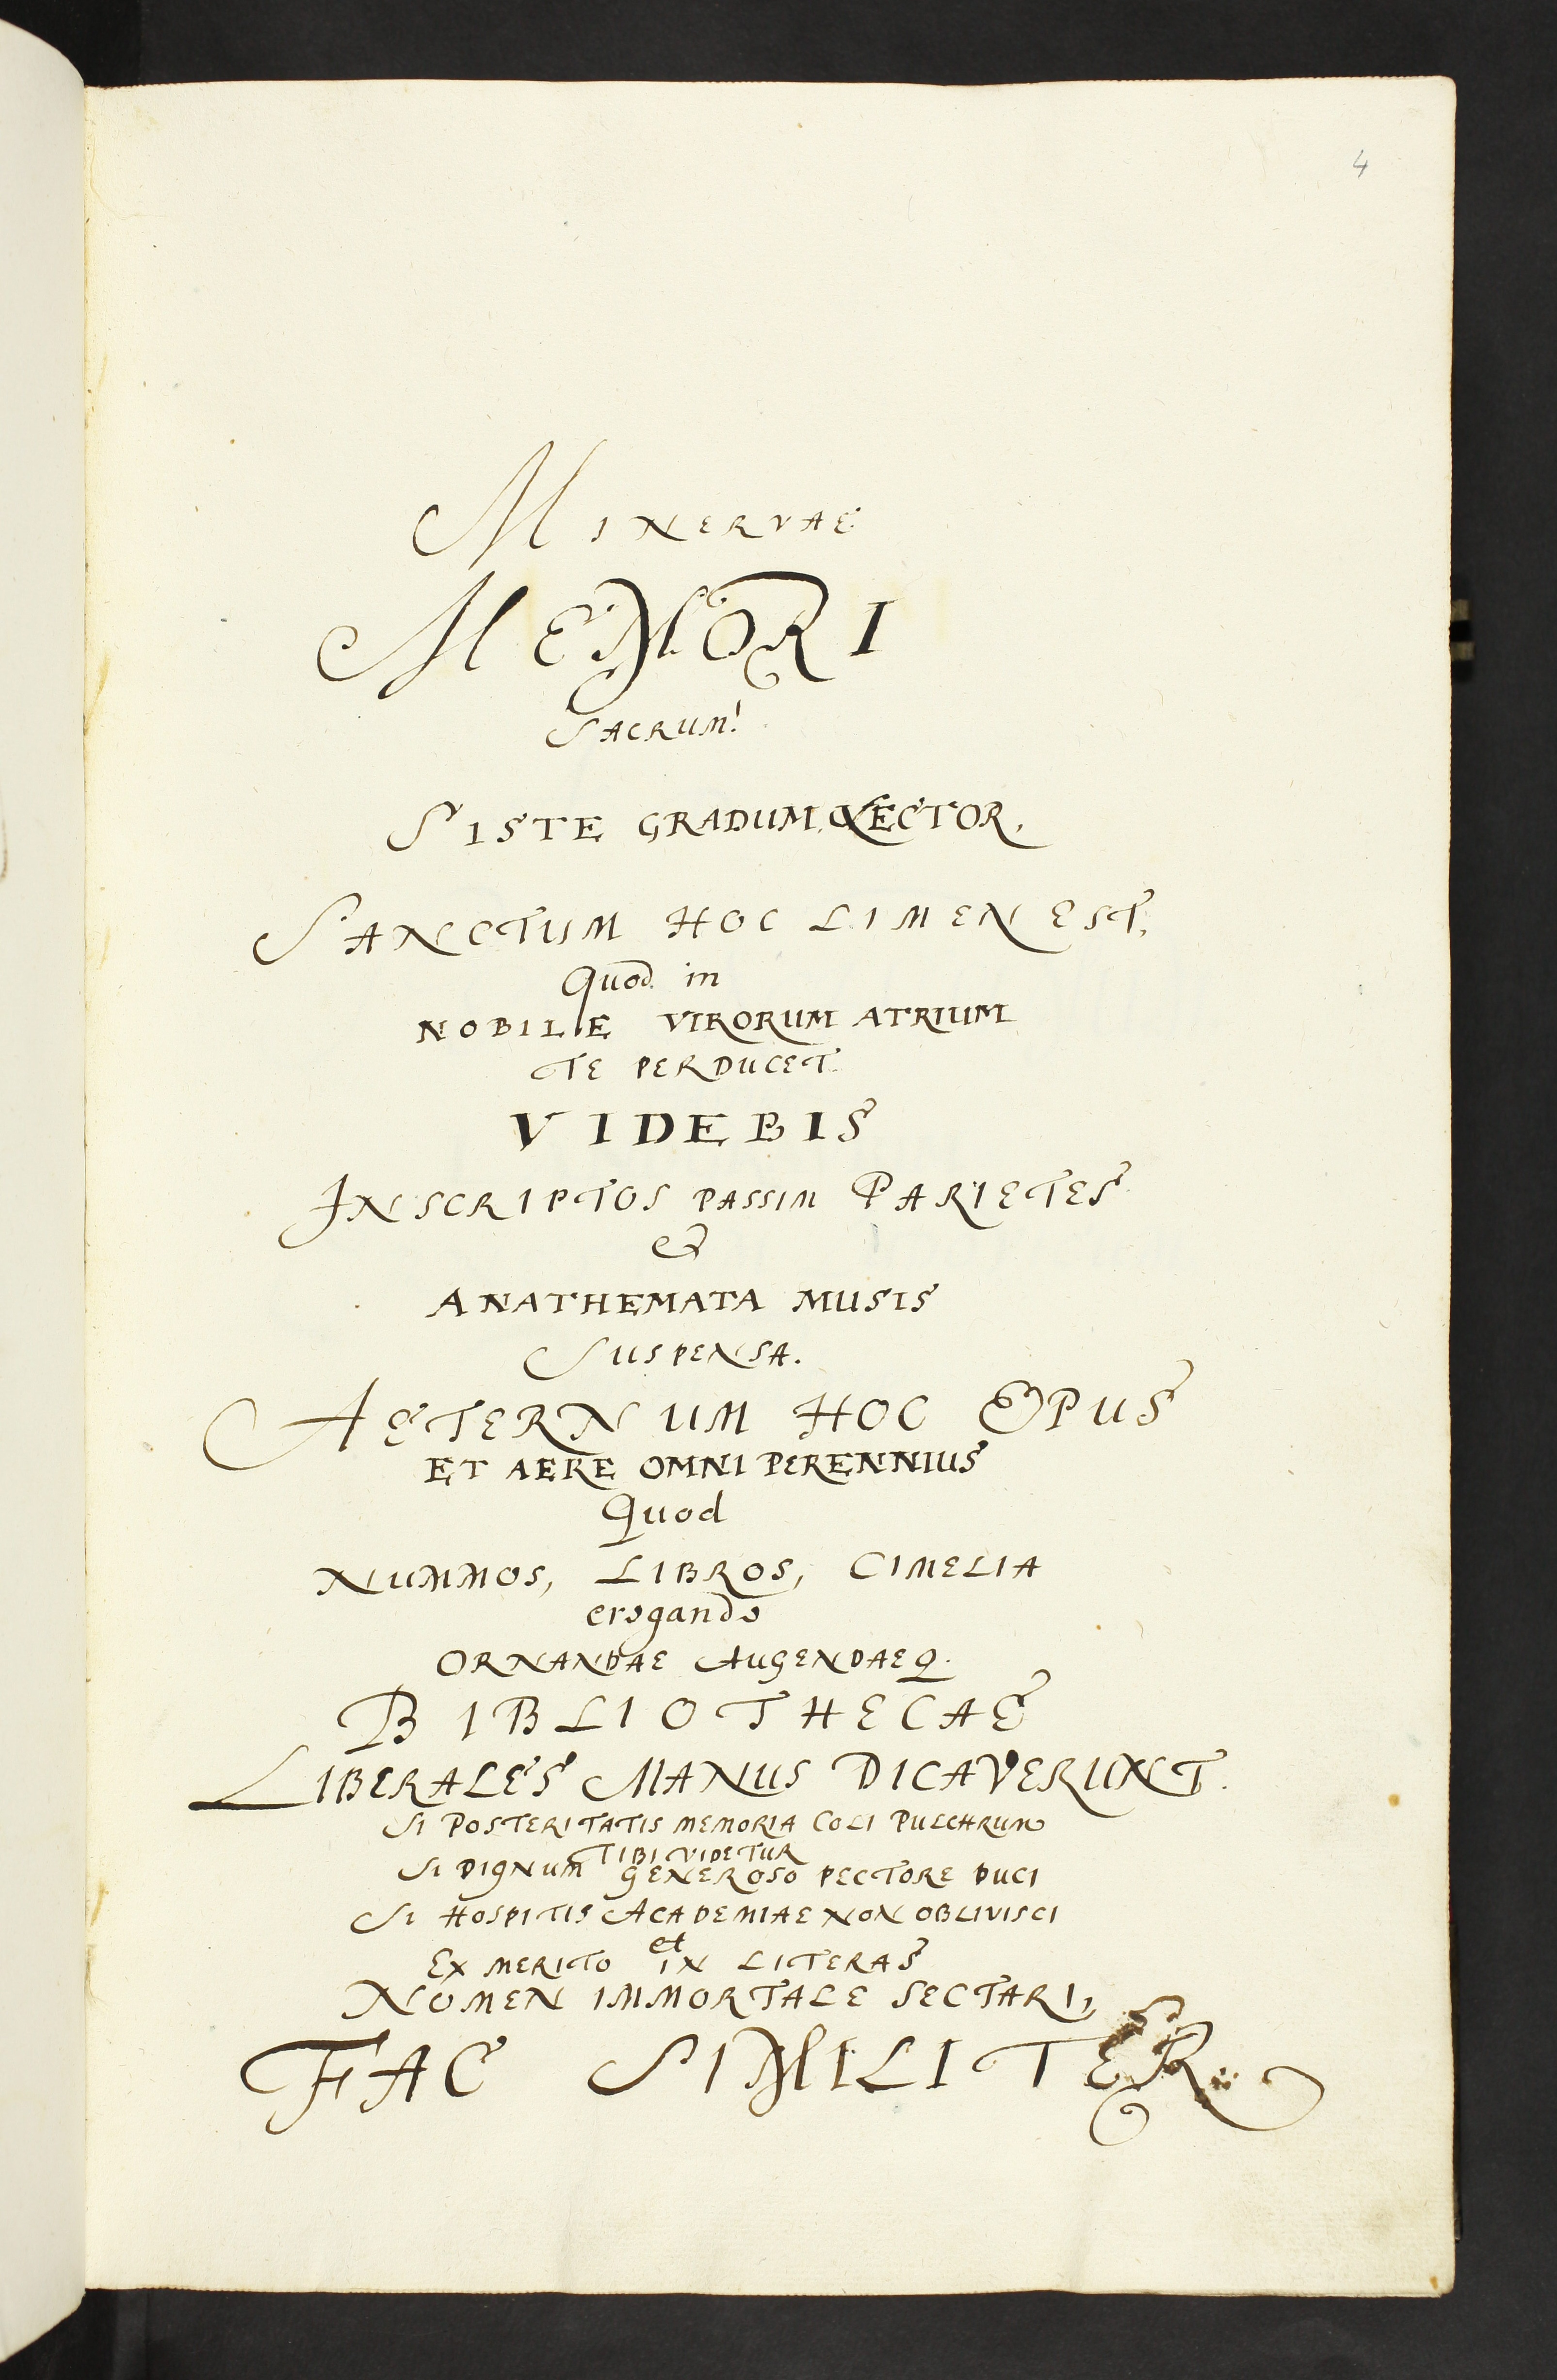 4
MINERVAE
MEMORI
SACRUM!
SISTE GRADUM, LECTOR,
SANCTUM HOC LIMEN EST,
Quod in
NOBILE VIRORUM ATRIUM
TE PERDUCET.
VIDEBIS
INSCRIPTOS PASSIM PARIETES
&
ANATHEMATA MUSIS
SUSPENSA.
AETERNUM HOC OPUS
ET AERE OMNI PERENNIUS
Quod
NUMMOS, LIBROS, CIMELIA
erogando
ORNANDAE AUGENDAEQ.
BIBLIOTHECAE
LIBERALES MANUS DICAVERUNT.
SI POSTERITATIS MEMORIA COLI PULCHRUM
TIBI VIDETUR
SI DIGNUM GENEROSO PECTORE DUCI
SI HOSPITIS ACADEMIAE NON OBLIVISCI
EX MERITO et IN LITERAS
NOMEN IMMORTALE SECTARI,
FAC SIMILITER.